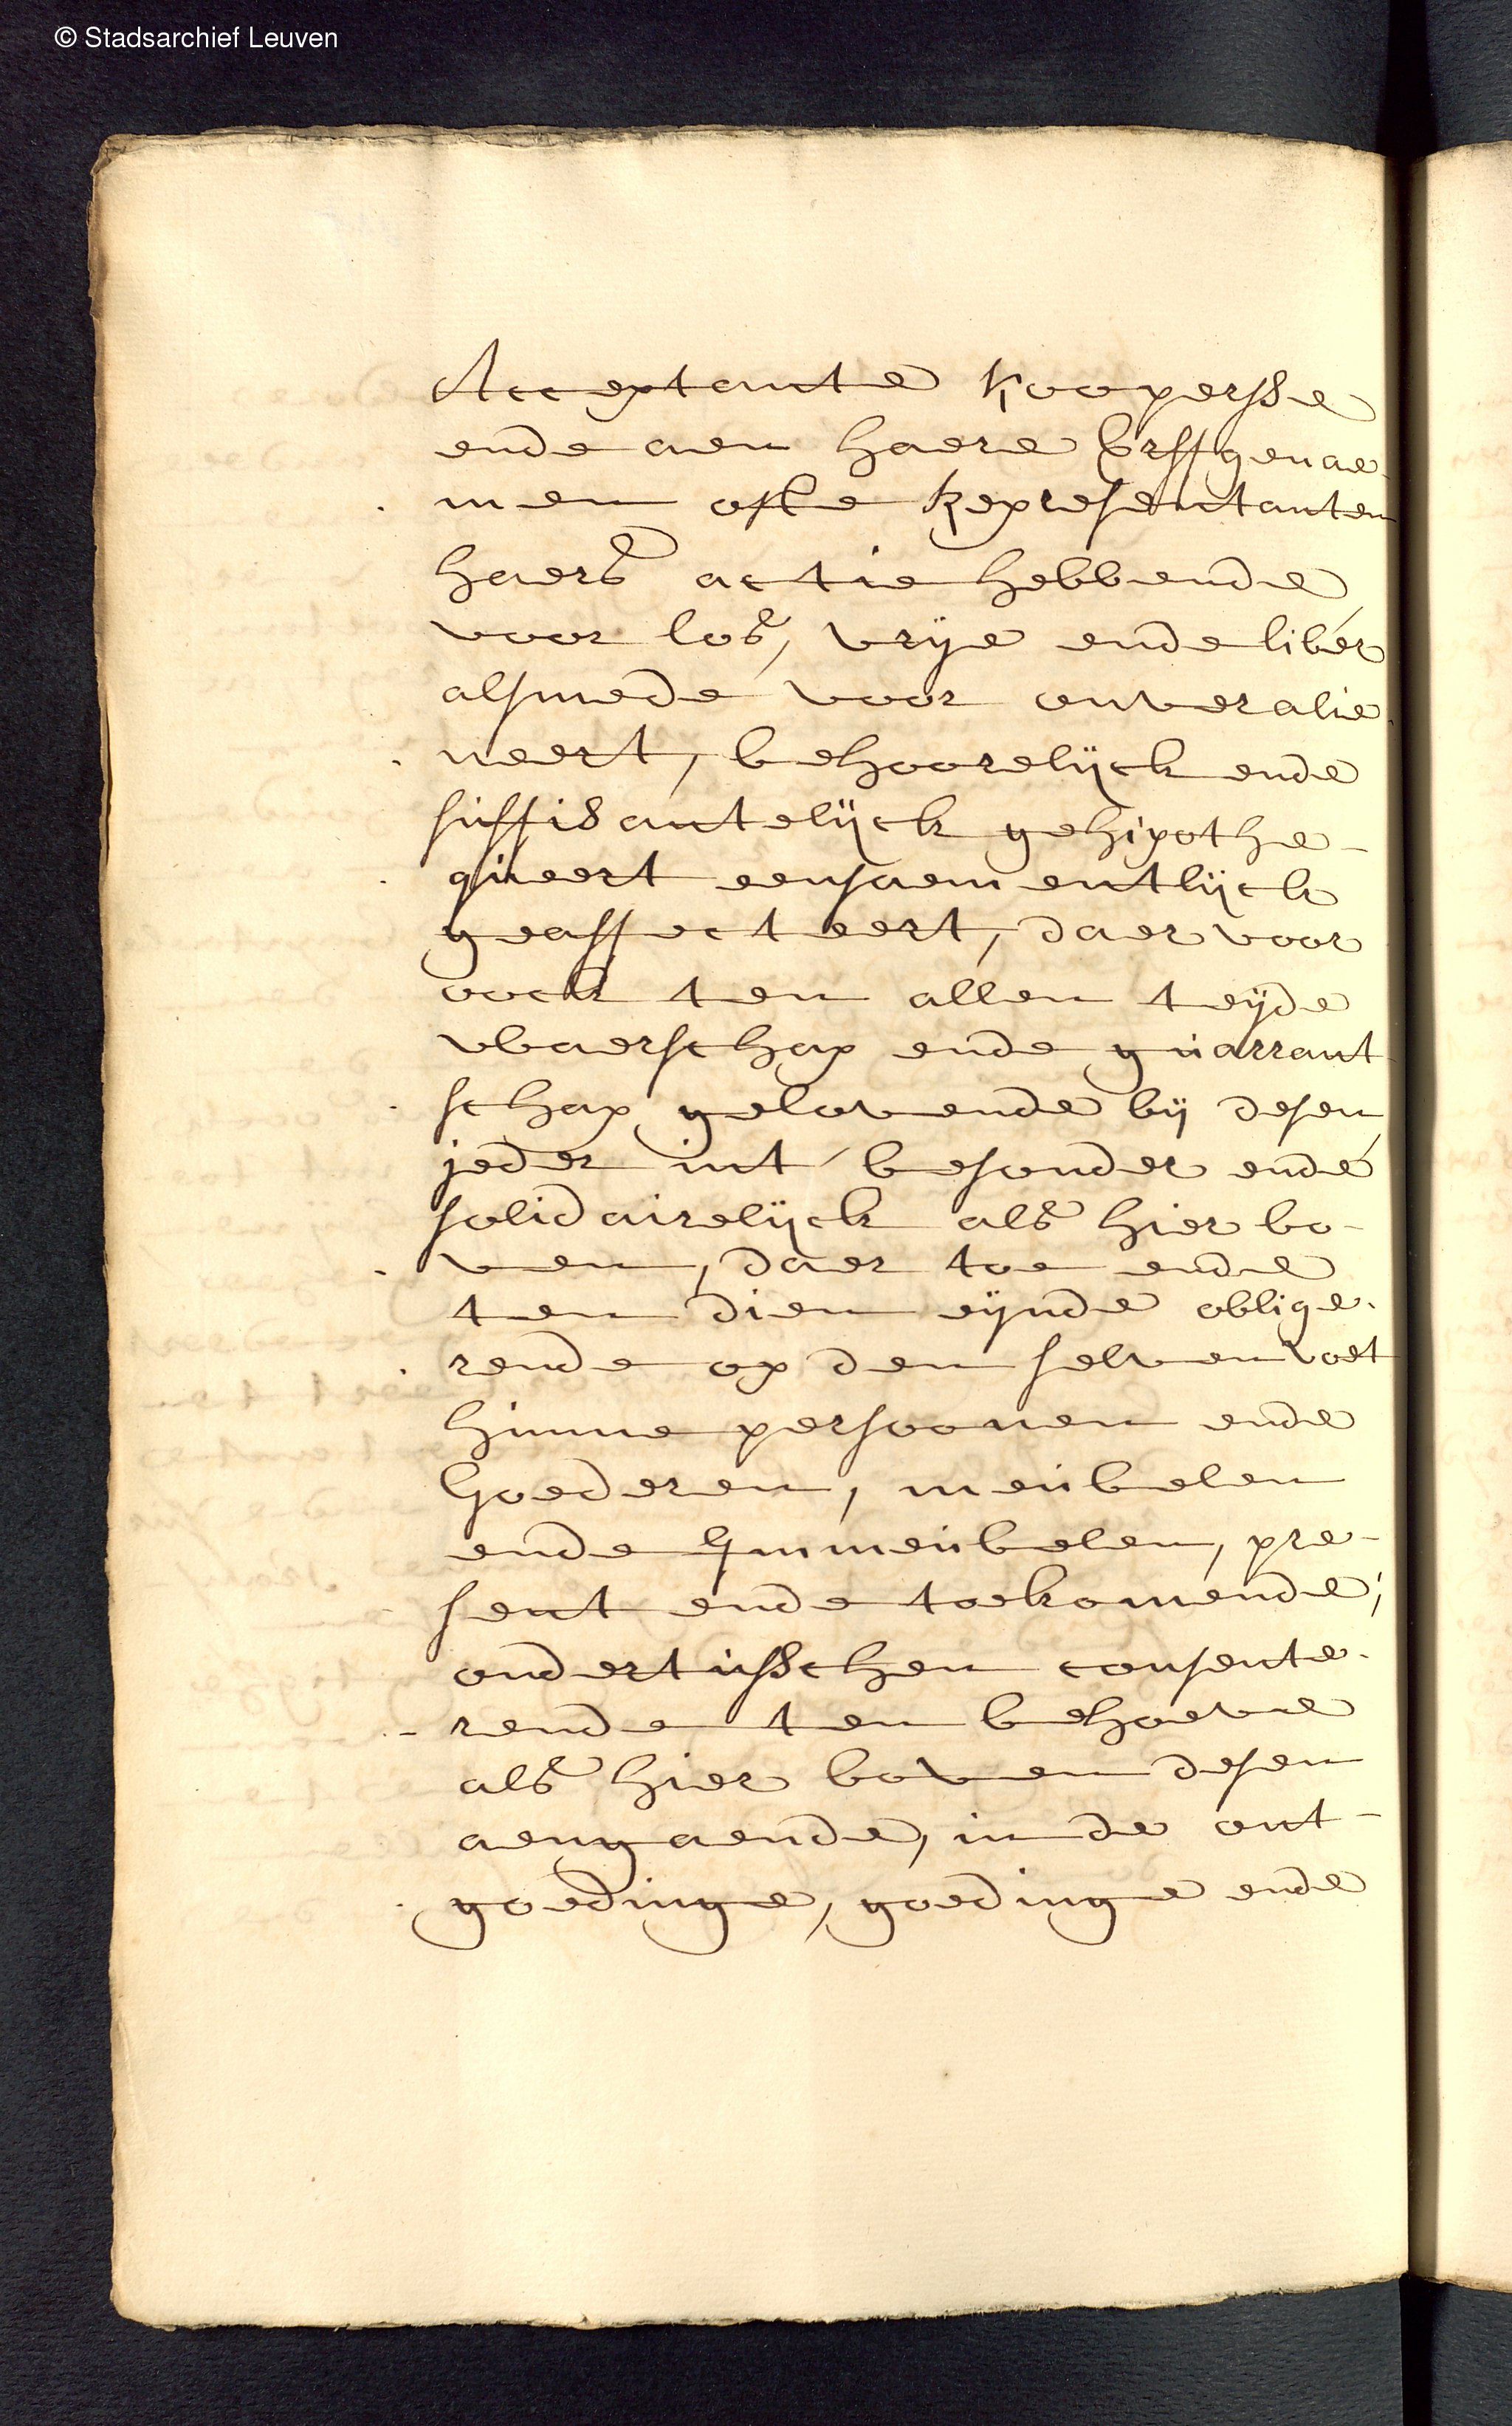 © Stadsarchief Leuven
Acceptante koopersse
ende aen haere Erffgenae-
men ofte Representanten
haers actie hebbende
voor los, vrije ende liber
alsmede voor onveralie-
neert, behoorelijck ende
suffisantelijck gehipothe-
queert eensaementlijck
geaffecteert, daer voor
oock ten allen teyde
waerschap ende guarrant-
schap gelovende bij desen
jeder int besonder ende
solidairelijck als hier bo-
ven, daer toe ende
ten dien eynde oblige-
rende op den selven voet
hunne persoonen ende
Goederen, meubelen
ende Immeubelen, pre-
sent ende toekomende;
ondertusschen consente-
rende ten behoeve
als hier boven desen
aengaende, in de ont-
goedinge, goedinge ende